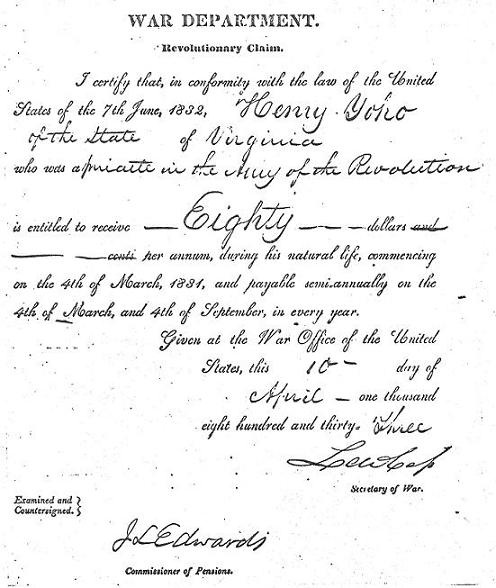 WAR DEPARTMENT.
Revolutionary Claim.
I certify that, in conformity with the law of the United
States of the 7th June, 1832, Henry Yoho
of the State of Virginia
who was a private in the Army of the Revolution
is entitled to receive — Eighty — — — dollars and
— — cents per annum, during his natural life, commencing
on the 4th of March, 1831, and payable semi-annually on the
4th of March, and 4th of September, in every year.
Given at the War Office of the United
States, this 10 – day of
April – one thousand
eight hundred and thirty- three
Lew Cass
Secretary of War.
Examined and }
Countersigned. }
J L Edwards
Commissioner of Pensions.